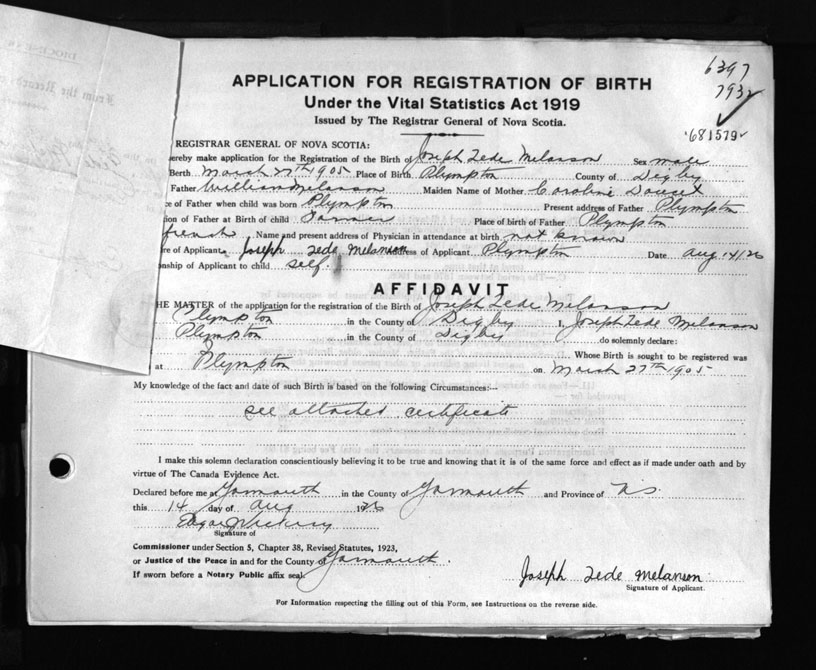 DIOCESE
From the Records
6397
7932
681579
APPLICATION FOR REGISTRATION OF BIRTH
Under the Vital Statistics Act 1919
Issued by The Registrar General of Nova Scotia.
REGISTRAR GENERAL OF NOVA SCOTIA:
ereby make application for the Registration of the Birth of Joseph Zede Melanson Sex male
Birth March 27th 1905 Place of Birth Plympton County of Digby
Father William Melanson Maiden Name of Mother Caroline Doucet
ce of Father when child was born Plympton Present address of Father Plympton
ion of Father at Birth of child Farmer Place of birth of Father Plympton
french Name and present address of Physician in attendance at birth not known
re of Applicant Joseph Zede Melanson Address of Applicant Plympton Date Aug 14/26
onship of Applicant to child self.
AFFIDAVIT
HE MATTER of the application for the registration of the Birth of Joseph Zede Melanson
Plympton in the County of Digby I, Joseph Zede Melanson
Plympton in the County of Digby do solemnly declare:
Whose Birth is sought to be registered was
at Plympton on March 27th 1905
My knowledge of the fact and date of such Birth is based on the following Circumstances:—
see attached certificate
I make this solemn declaration conscientiously believing it to be true and knowing that it is of the same force and effect as if made under oath and by
virtue of The Canada Evidence Act.
Declared before me at Yarmouth in the County of Yarmouth and Province of NS
this 14 day of Aug 1926
Signature of
Commissioner under Section 5, Chapter 38, Revised Statutes, 1923,
or Justice of the Peace in and for the County of Yarmouth.
If sworn before a Notary Public affix seal.
Joseph Zede Melanson
Signature of Applicant.
For Information respecting the filling out of this Form, see Instructions on the reverse side.